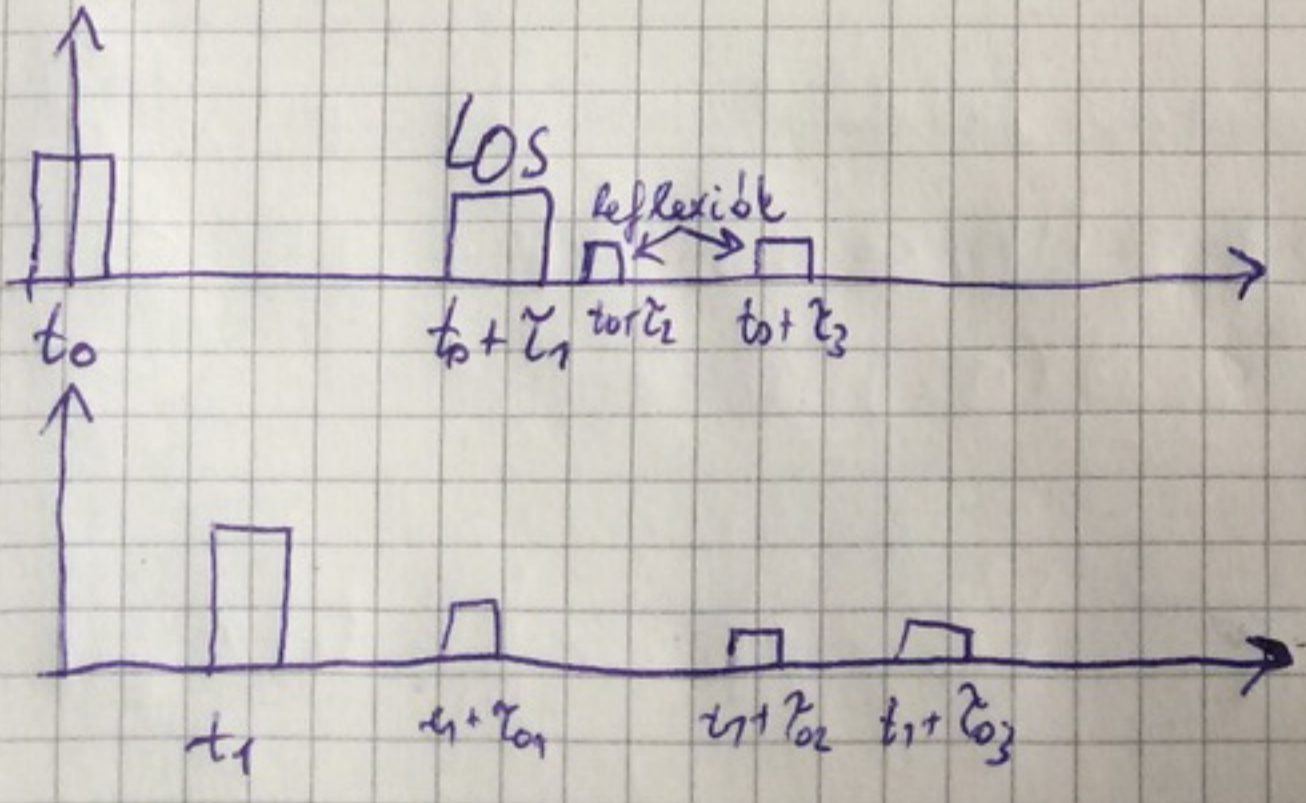 LOS
reflexiók
t₀ t₀ + τ₁ t₀+τ₂ t₀ + τ₃
t₁ t₁ + τ₀₁ t₁ + τ₀₂ t₁ + τ₀₃